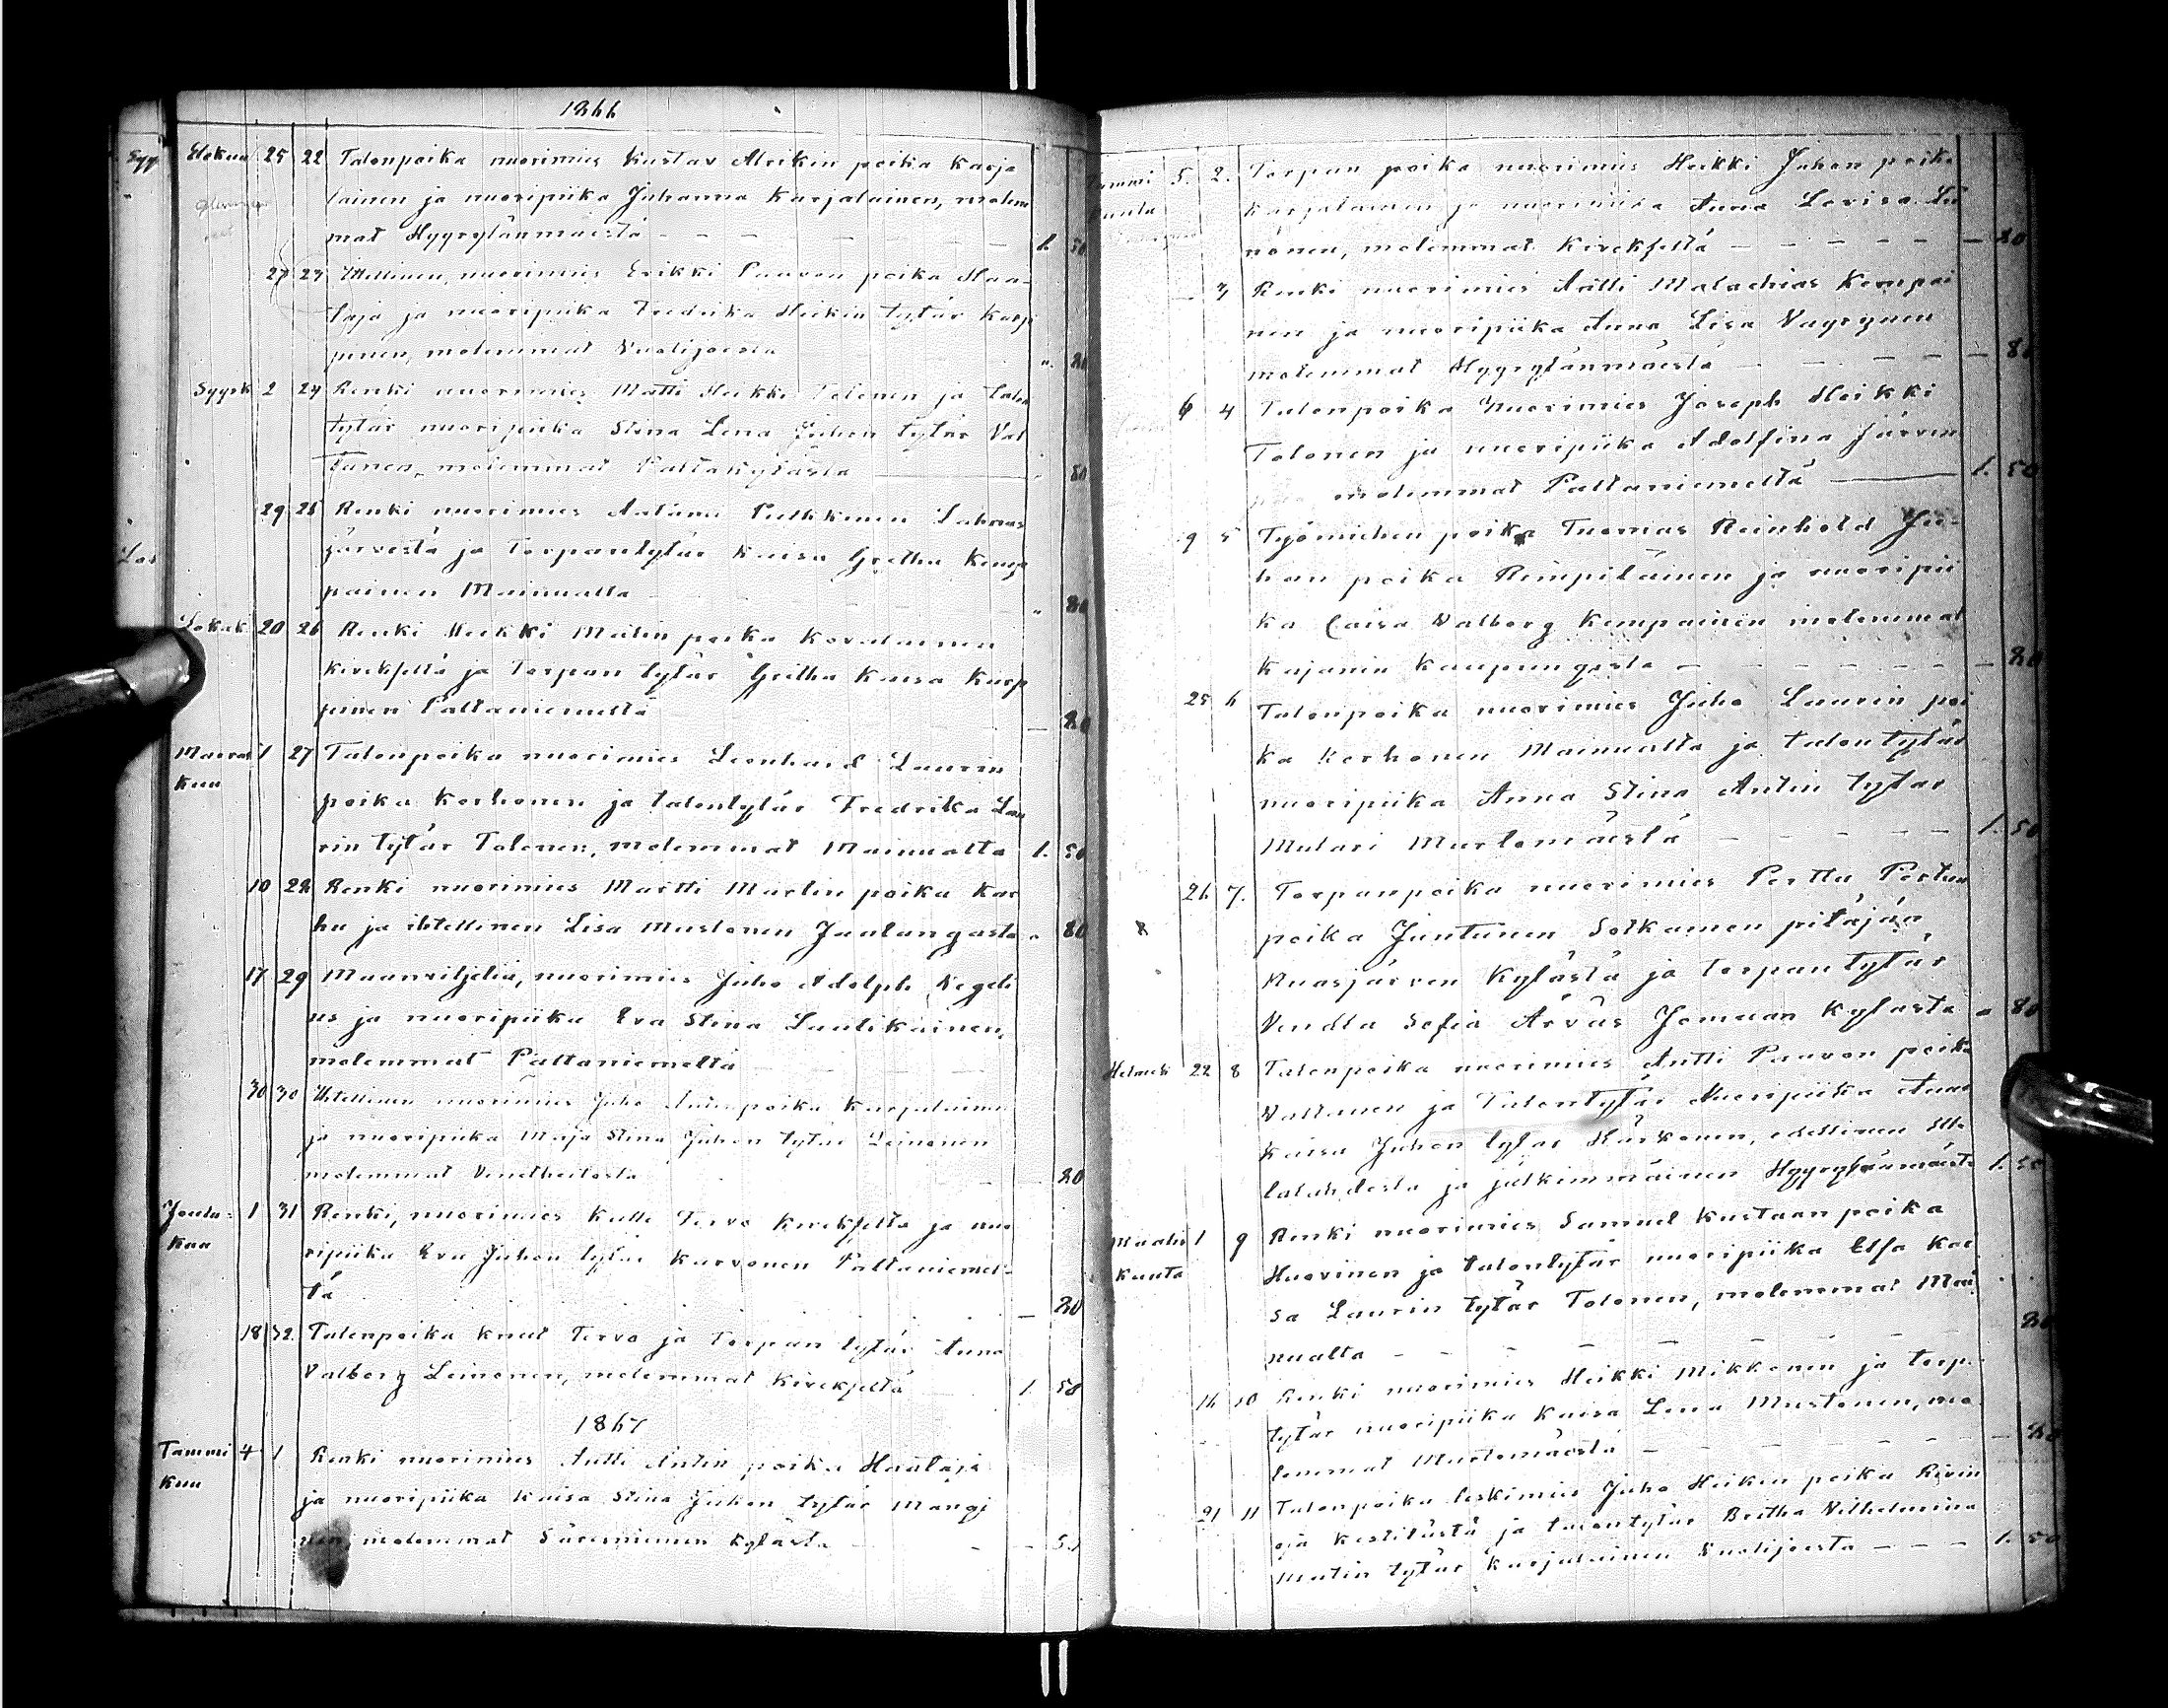 1866
Elokuu 25 22 Talonpoika nuorimies Kustav Alrikin poika Karja
lainen ja nuoripiika Johanna Karjalainen, molem
mat Hyyrylänmäestä - - - 1. 50
27 23 Ittellinen, nuorimies Erikki Paavon poika Haa-
taja ja nuoripiika Fredrika Heikin tytär Karp
pinen, molemmat Vuolijoesta " 80
Syysk 2 24 Renki nuorimies Matti Heikki Tolonen ja talon
tytär nuoripiika Stina Lena Juhon tytär Val
tanen, molemmat Paltakylästä " 80
29 25 Renki nuorimies Aatami Pulkkinen Lahnas
järvestä ja torpantytär Kaisa Gretha Kemp
painen Mainualta " 80
Lokak 20 26 Renki Heikki Matin poika Kovalainen
Kirckseltä ja torpan tytär Gretha Kaisa Karp
pinen Paltaniemeltä — 80
Marras 1 27 Talonpoika nuorimies Leonhard Laurin
kuu
poika Korhonen ja talontytär Fredrika Lau
rin tytär Tolonen, molemmat Mainualta 1. 50
10 28 Renki nuorimies Martti Martin poika Kar
hu ja ittellinen Lisa Mustonen Jaalangasta " 80
17 29 Maanviljeliä, nuorimies Juho Adolph Vegeli
us ja nuoripiika Eva Stina Luulikainen,
molemmat Paltaniemeltä
30 30 Ittellinen nuorimies Juho Antin poika Karjalainen
ja nuoripiika Maja Stina Juhon tytär Leinonen
molemmat Venetheitosta 80
Joulu- 1 31 Renki, nuorimies Kalle Tervo Kirckseltä ja nuo
kuu
ripiika Eva Juhon tytär Karvonen Paltaniemel-
tä — 80
18 32. Talonpoika Knut Tervo ja torpan tytär Anna
Valborg Leinonen, molemmat Kirckseltä 1. 50
1867
Tammi 4 1 Renki nuorimies Antti Antin poika Haataja
kuu
ja nuoripiika Kaisa Stina Juhon tytär Mangi
nen, molemmat Säresniemen kylästä - - 50
5. 2. Torpan poika nuorimies Heikki Juhon poika
Karjalainen ja nuoripiika Anna Lovisa Lii
nonen, molemmat Kirckseltä - - - 80
— 3 Renki nuorimies Antti Malachias Kemppai
nen ja nuoripiika Anna Lisa Väyrynen
molemmat Hyyrylänmäestä - - - 80
6 4 Talonpoika nuorimies Joseph Heikki
Tolonen ja nuoripiika Adolfina Järvin
molemmat Paltaniemeltä — 1. 50
9 5 Työmiehen poika Tuomas Reinhold Ju-
han poika Rimpiläinen ja nuoripii
ka Caisa Valborg Kempainen molemmat
Kajanin kaupungista - - - 80
25 6 Talonpoika nuorimies Juho Laurin poi
ka Korhonen Mainualta ja talontytär
nuoripiika Anna Stina Antin tytär
Mulari Murtomäestä - - - 1. 50
26 7. Torpanpoika nuorimies Perttu Pertun
poika Juntunen Sotkamon pitäjän,
Nuasjärven kylästä ja torpantytär
Vendla Sofia Ärväs Jormuan kylästä " 80
Helmik 22 8 Talonpoika nuorimies Antti Paavon poika
Valtanen ja Talontytär Nuoripiika Anna
Kaisa Juhon tytär Härkönen, edellinen
lalahdesta ja jälkimmäinen Hyyrylänmäestä 1. 50
Maalis 1 9 Renki nuorimies Samuel Kustaan poika
kuuta
Huovinen ja talontytär nuoripiika Elsa Kai
sa Laurin tytär Tolonen, molemmat Mai
nualta - - - 80
16 10 Renki nuorimies Heikki Mikkonen ja torp.
tytär nuoripiika Kaisa Lena Mustonen, mo
lemmat Murtomäestä - - - 80
21 11 Talonpoika leskimies Juho Heikin poika Rivin
oja Kestilästä ja talontytär Britha Vilhelmina
Matin tytär Karjalainen Vuolijoesta - - - 1. 50